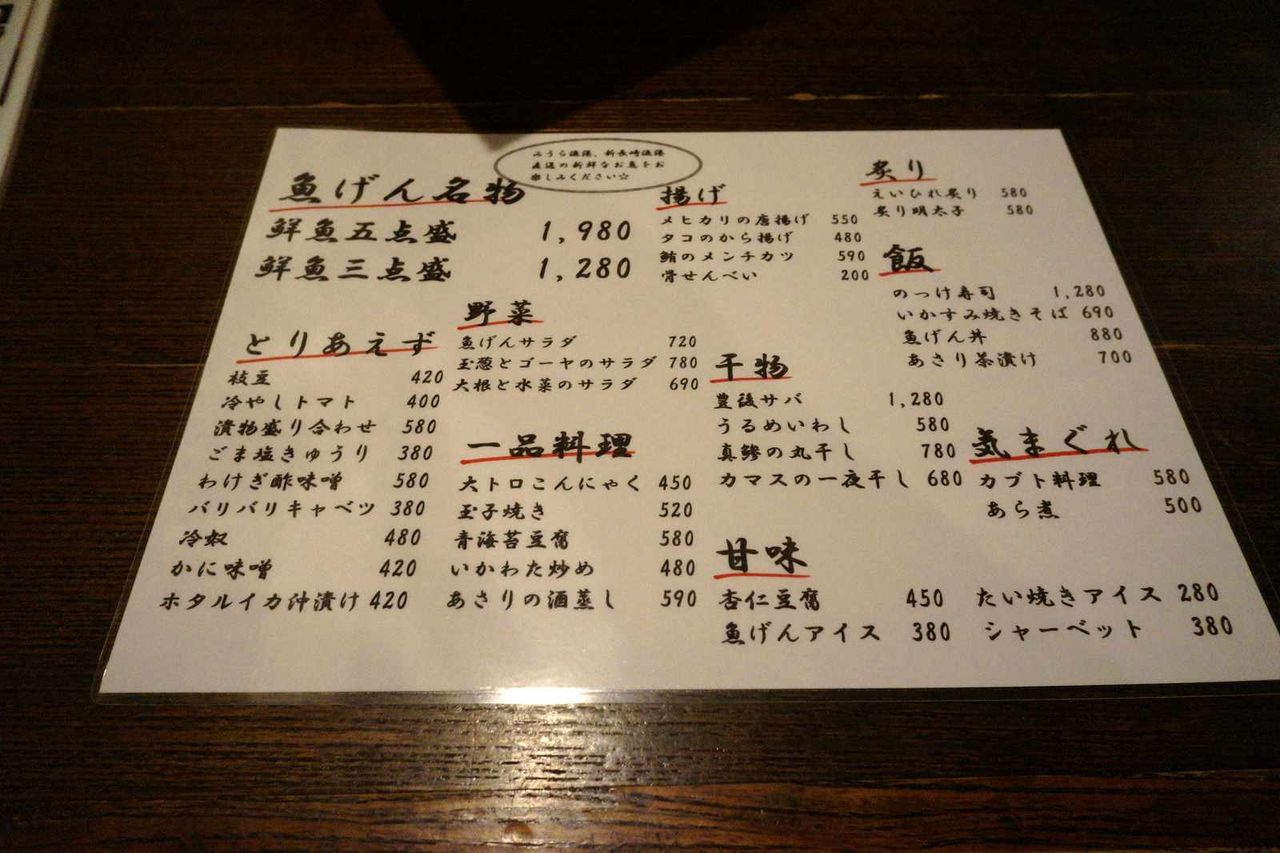 みうら漁港、新長崎漁港
直送の新鮮なお魚をお
楽しみください☆
魚げん名物
鮮魚五点盛 1,980
鮮魚三点盛 1,280
とりあえず
枝豆 420
冷やしトマト 400
漬物盛り合わせ 580
ごま塩きゅうり 380
わけぎ酢味噌 580
バリバリキャベツ 380
冷奴 480
かに味噌 420
ホタルイカ沖漬け 420
野菜
魚げんサラダ 720
玉葱とゴーヤのサラダ 780
大根と水菜のサラダ 690
一品料理
大トロこんにゃく 450
玉子焼き 520
青海苔豆腐 580
いかわた炒め 480
あさりの酒蒸し 590
揚げ
メヒカリの唐揚げ 550
タコのから揚げ 480
鮪のメンチカツ 590
骨せんべい 200
干物
豊後サバ 1,280
うるめいわし 580
真鯵の丸干し 780
カマスの一夜干し 680
炙り
えいひれ炙り 580
炙り明太子 580
飯
のっけ寿司 1,280
いかすみ焼きそば 690
魚げん丼 880
あさり茶漬け 700
気まぐれ
カブト料理 580
あら煮 500
甘味
杏仁豆腐 450
魚げんアイス 380
たい焼きアイス 280
シャーベット 380